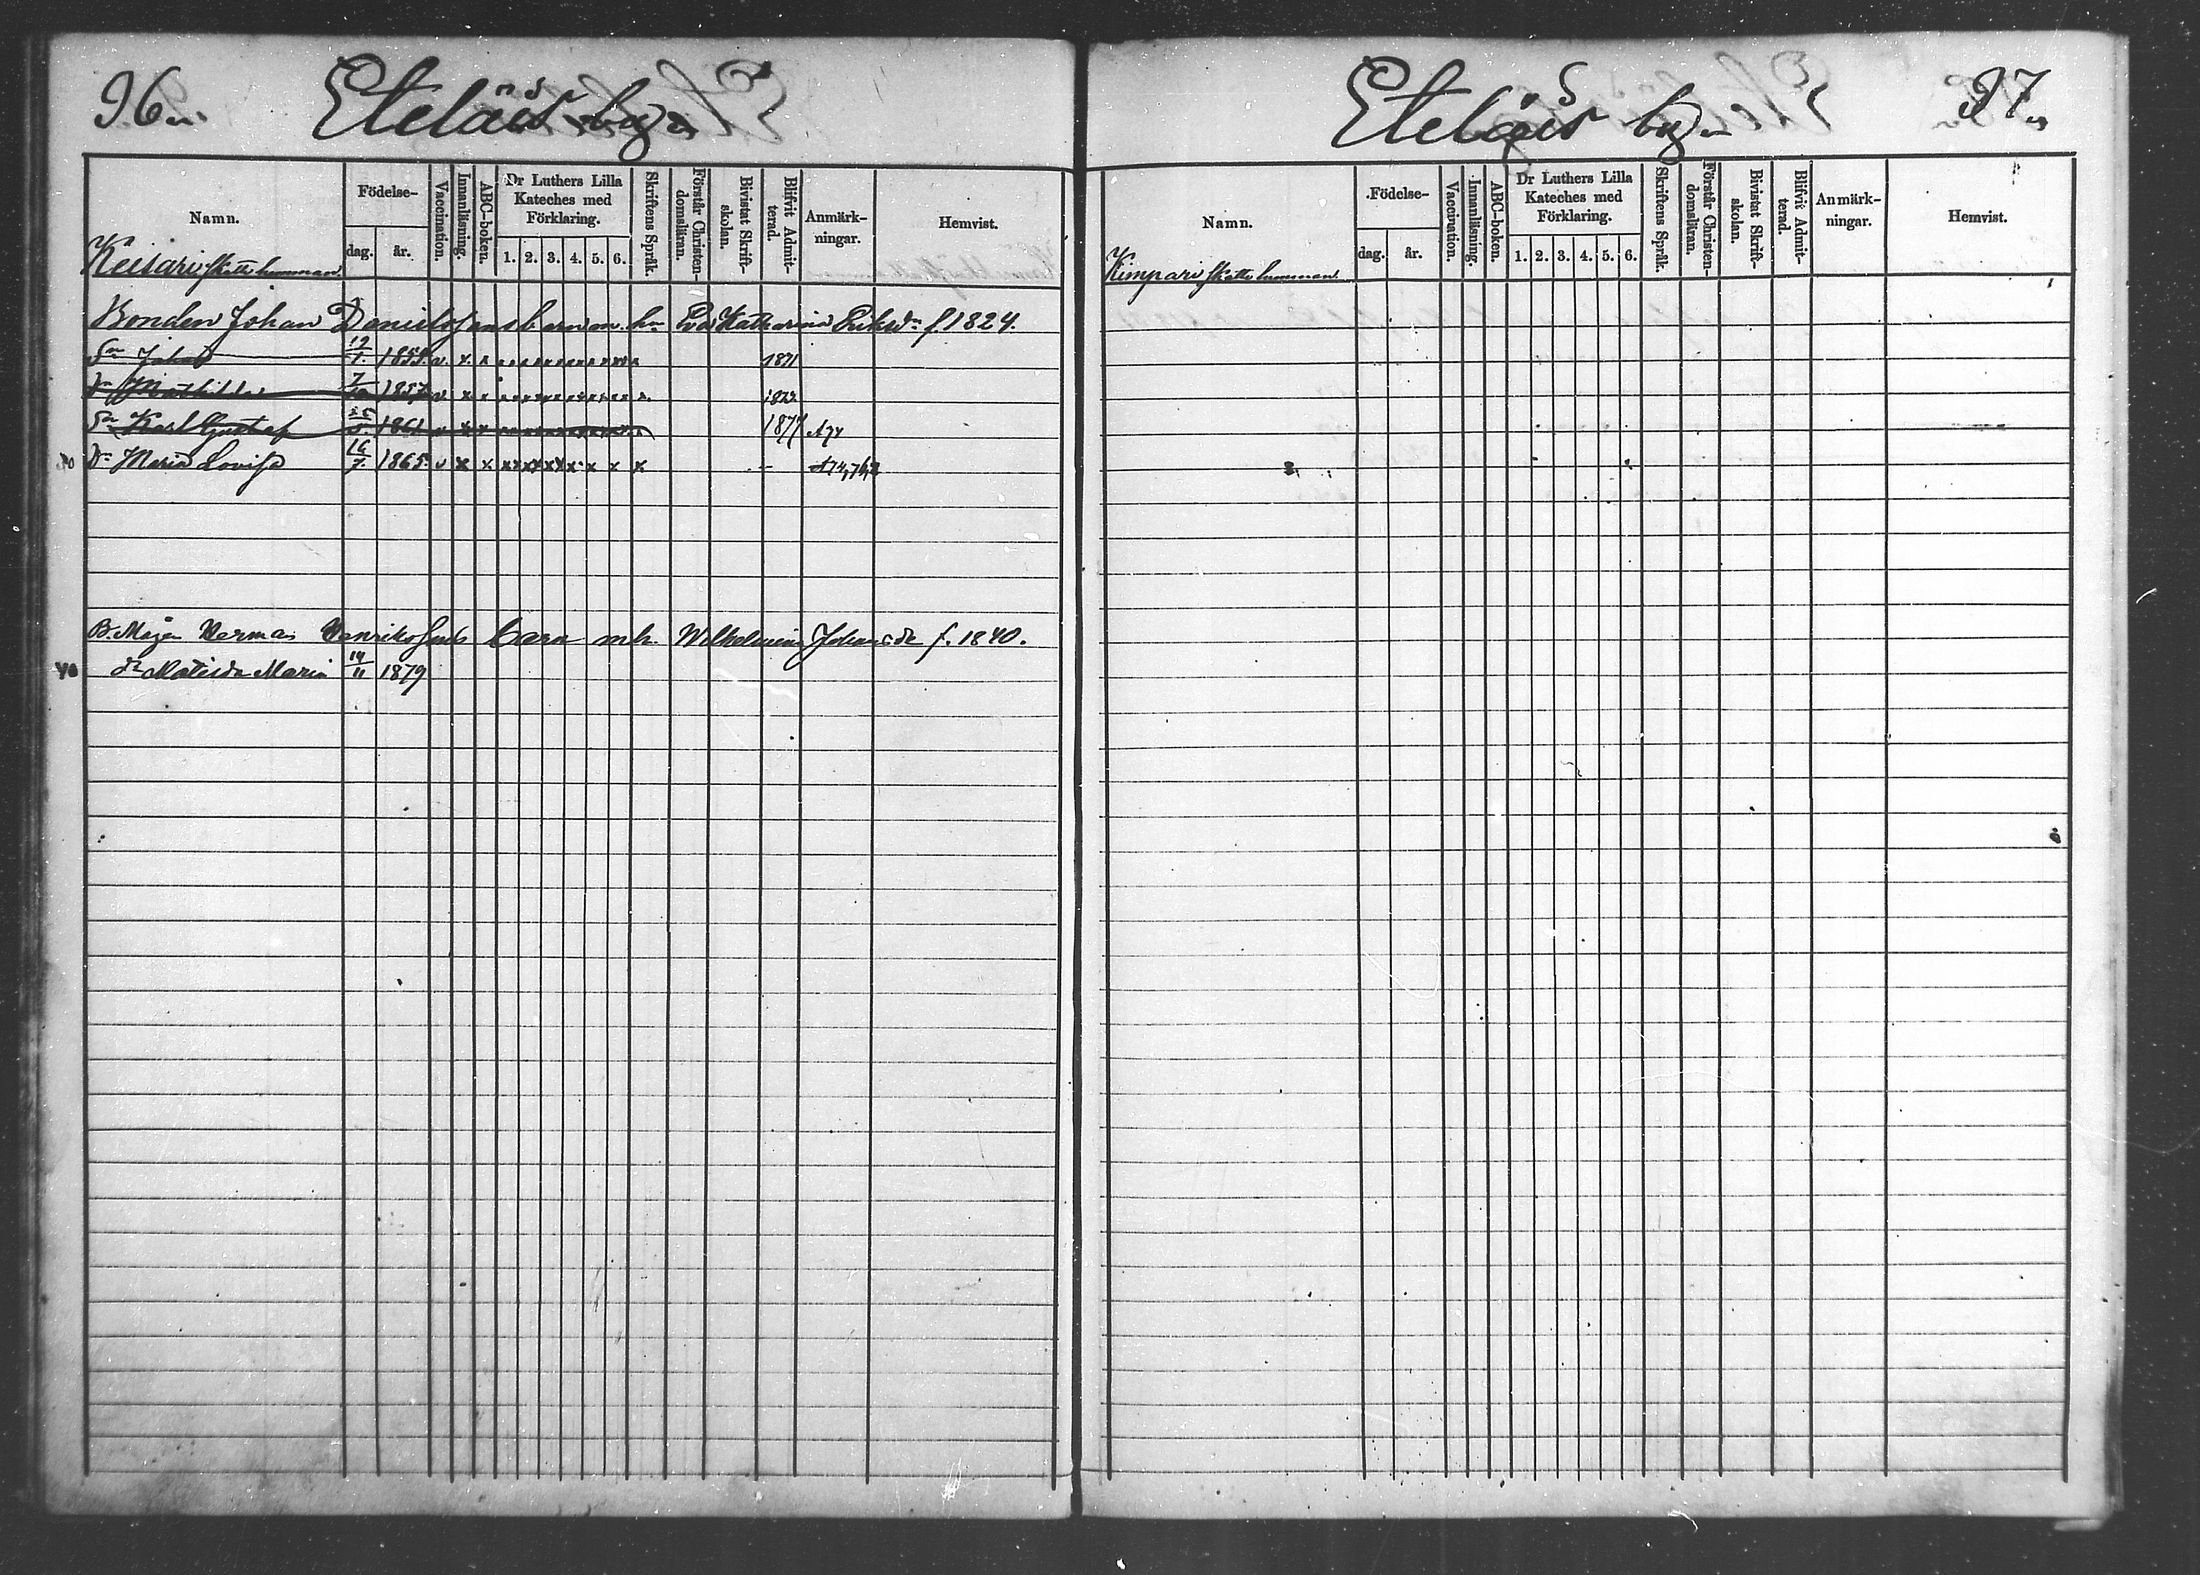 96.
Eteläis by.
Namn.
Födelse-
dag. år.
Vaccination.
Innanläsning.
ABC-boken.
Dr Luthers Lilla Kateches med Förklaring.
1. 2. 3. 4. 5. 6.
Skriftens Språk.
Förstår Christendomsläran.
Bivistat Skriftskolan.
Blifvit Admitterad.
Anmärk-
ningar.
Hemvist.
Keisari skatte hemman.
Bonden Johan Danielssons barn m. h. Eva Katharina Eriksdr f 1824.
Sn Johan 19/1. 1855. v. x. x 1871
Dr Mathilda 7/10 1857 v x x 1872
Sn Karl Gustaf 25/5. 1861 v x x 1877
Dr Maria Lovisa 16/7. 1865. v x x x x x x x x x
B. Mågen Herman Henrikssons barn m.h. Wilhelmina Johansdr f. 1840.
40 dr Matilda Maria 14/11 1879
97.
Eteläis by.
Namn.
Födelse-
dag. år.
Vaccination.
Innanläsning.
ABC-boken.
Dr Luthers Lilla
Kateches med
Förklaring.
1. 2. 3. 4. 5. 6.
Skriftens Språk.
Förstår Christen-
domsläran.
Bivistat Skrift-
skolan.
Blifvit Admit-
terad.
Anmärk-
ningar.
Hemvist.
Kimpari skatte hemman.